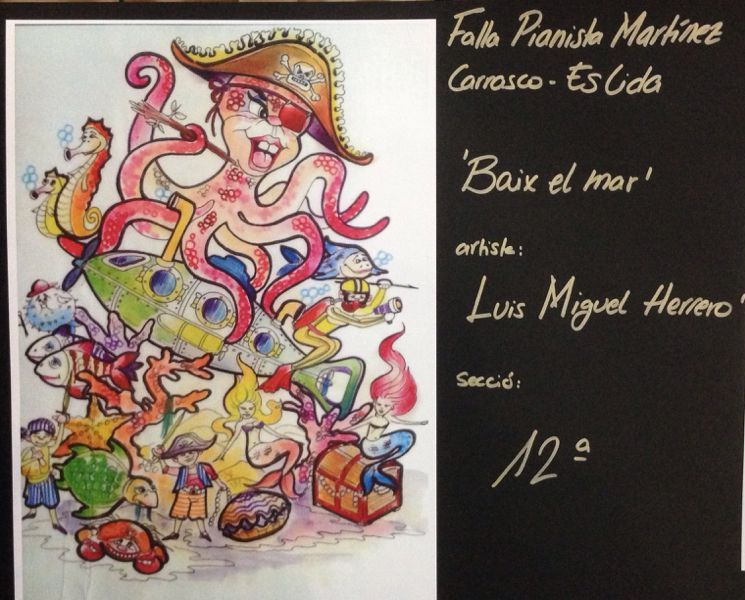 Falla Pianista Martínez
Carrasco - Eslida
'Baix el mar'
artiste:
Luis Miguel Herrero
secció:
12ª